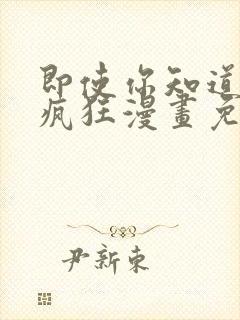 即使你知道
疯狂漫畫免
尹新東